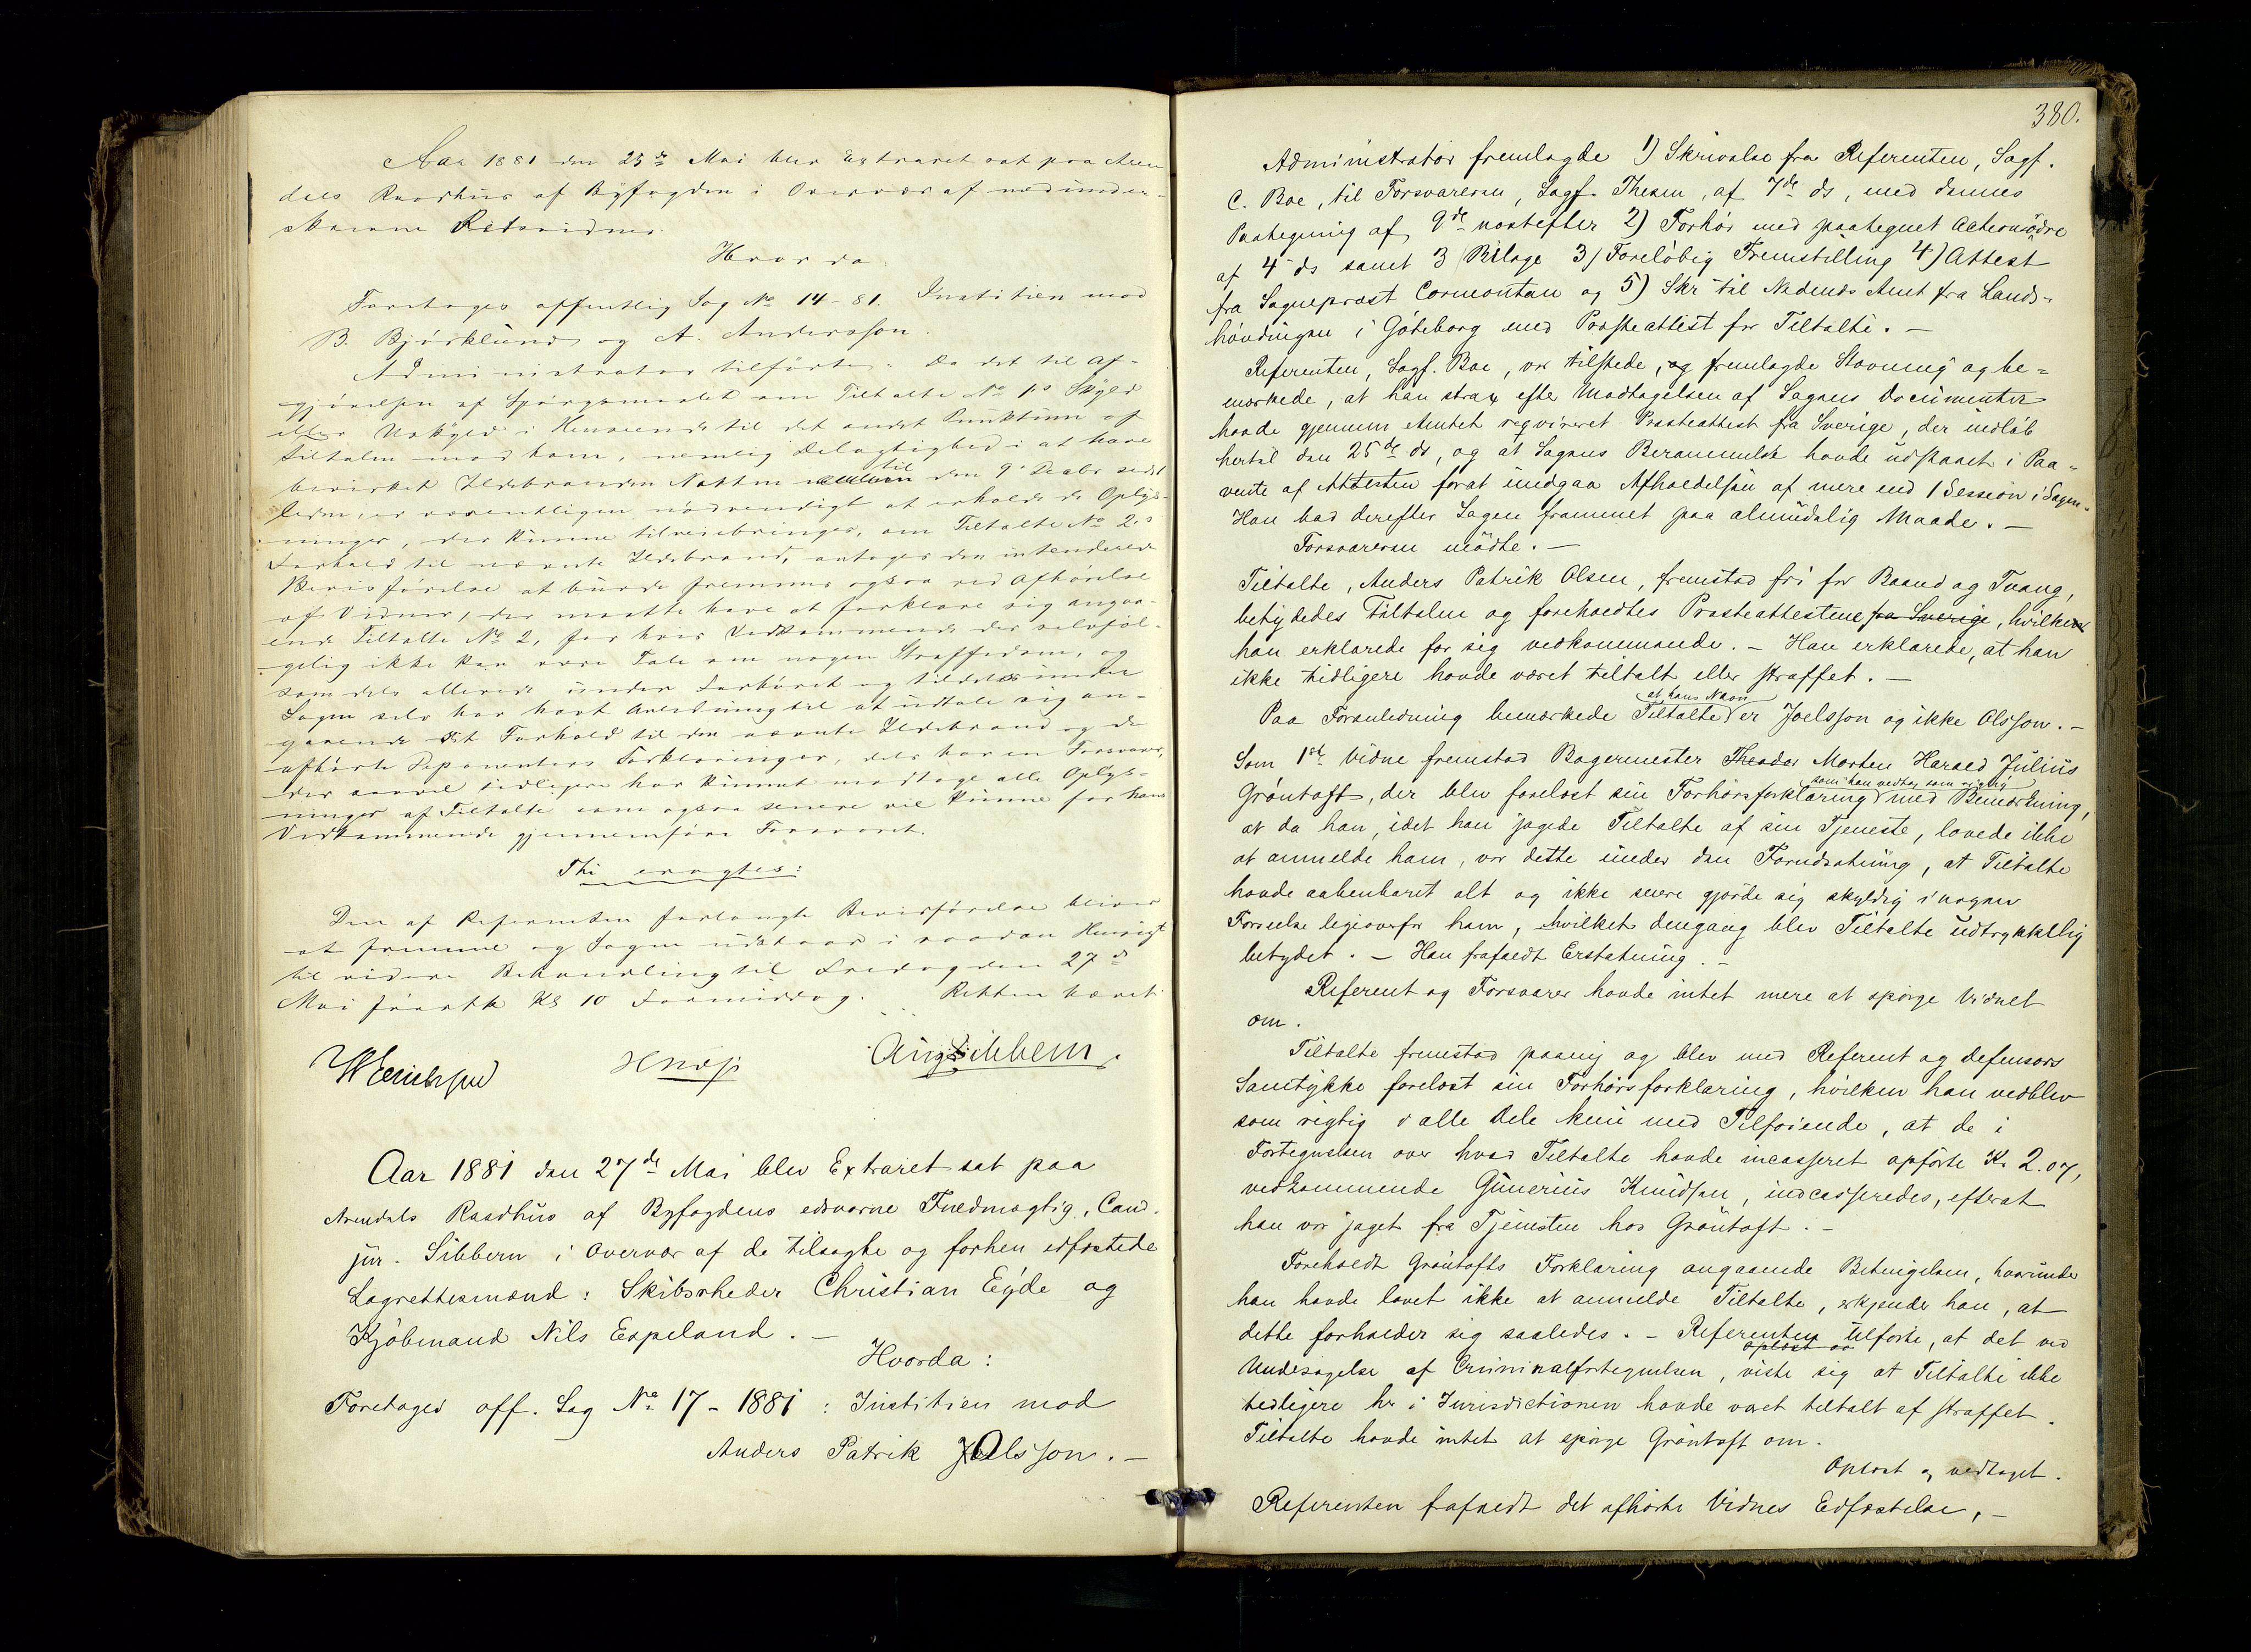 Aar 1881 den 25de Mai blev Extraret sat paa Aren
dals Raadhus af Byfogden i Overvær af nedunder-
skrevne Retsvidner.
Hvorda:
Foretoges offentlig Sag No 14-81. Justitien mod
B. Bjørklund og A. Andersson.
Administrator tilførte: Da det til Af-
gjørelsen af Spørgsmaalet om Tiltalte No 1's Skyld
eller Uskyld i Henseende til det andet Punktum af
Tiltalen mod ham, nemlig Delagtighed i at have
bevirket Ildebranden Natten til den 9 Decbr sidst
leden, er væsentligen nødvendigt at erholde de Oplys-
ninger, der kunne tilveiebringes, om Tiltalte No 2's
Forhold til nævnte Ildebrand, antages den intenderede
Bevisførelse at burde fremmes ogsaa ved Afhørelse
af Vidner, der maatte have at forklare sig angaa-
ende Tiltalte No 2, for hvis Vedkommende der selvføl-
gelig ikke kan være Tale om nogen Straffedom, og
som dels allerede under Forhøret og tildels under
Sagen selv har havt Anledning til at udtale sig an-
gaaende sit Forhold til den nævnte Ildebrand og de
afhørte Deponenters Forklaringer, dels har en Forsvarer,
der saavel tidligere har kunnet modtage alle Oplys-
ninger af Tiltalte som ogsaa senere vil kunne for hans
Vedkommende gjennemføre Forsvaret.
Thi eragtes:
Den af Referenten forlangte Bevisførelse bliver
at fremme og Sagen udstaar i saadan Henseende
til videre Behandling til Fredag den 27de
Mai førstk Kl 10 Formiddag. Retten hævet
Aug Sibbern.
Aar 1881 den 27de Mai blev Extraret sat paa
Arendals Raadhus af Byfogdens edsvorne Fuldmægtig, Cand.
jur. Sibbern i Overvær af de tilsagte og forhen edfæstede
Lagrettesmænd: Skibsrheder Christian Eyde og
Kjøbmand Nils Espeland. —
Hvorda:
Foretoges off. Sag No 17 - 1881: Justitien mod
Anders Patrik Olsson. —
380.
Administrator fremlagde 1) Skrivelse fra Referenten, Sagf.
C. Boe, til Forsvareren, Sagf. Thesen, af 7de ds, med dennes
Paategning af 9de næstefter 2) Forhør med paategnet Actionsordre
af 4 ds samt 3 Bilage 3) Foreløbig Fremstilling 4) Attest
fra Sogneprest Cormontan og 5) Skr til Nedenæs Amt fra Lands-
høvdingen i Göteborg med Præsteattest for Tiltalte. —
Referenten, Sagf. Boe, var tilstede, og fremlagde Stævning og be=
mærkede, at han strax efter Modtagelsen af Sagens Documenter
havde gjennem Amtet reqvireret Præsteattest fra Sverige, der indløb
hertil den 25de ds, og at Sagens Berammelse havde udstaaet i Paa-
vente af Attesten forat undgaa Afholdelsen af mere end 1 Session i Sagen.
Han bad derefter Sagen fremmet paa almindelig Maade. —
Forsvareren mødte. —
Tiltalte, Anders Patrik Olsen, fremstod fri for Baand og Tvang,
betydedes Tiltalen og foreholdtes Præsteattestene fra Sverige, hvilken
han erklærede for sig vedkommende. — Han erklærede, at han
ikke tidligere havde været tiltalt eller straffet. —
at hans Navn
Paa Foranledning bemærkede Tiltalte er Joelsson og ikke Olsson. —
Som 1ste Vidne fremstod Bagermester Theodor Morten Harald Julius
som han vedtog som rigtig
Grøntoft, der blev forelæst sin Forhørsforklaring med Bemærkning,
at da han, idet han jagede Tiltalte af sin Tjeneste, lovede ikke
at anmelde ham, var dette under den Forudsætning, at Tiltalte
havde aabenbaret alt og ikke senere gjorde sig skyldig i nogen
Forseelse ligeoverfor ham, hvilket dengang blev Tiltalte udtrykkelig
betydet. — Han frafaldt Erstatning. —
Referent og Forsvarer havde intet mere at spørge Vidnet
om.
Tiltalte fremstod paany og blev med Referent og Defensors
Samtykke forelæst sin Forhørsforklaring, hvilken han vedblev
som rigtig i alle Dele kun med Tilføiende, at de i
Fortegnelsen over hvad Tiltalte havde incasseret opførte Kr 2.07,
vedkommende Gunerius Knudsen, indcasseredes, efterat
han var jaget fra Tjenesten hos Grøntoft. —
Foreholdt Grøntofts Forklaring angaaende Betingelsen, hvorunder
han havde lovet ikke at anmelde Tiltalte, erkjender han, at
dette forholder sig saaledes. — Referenten tilførte, at det ved
Undersøgelse af Criminalfortegnelsen, viste sig at Tiltalte ikke
tidligere her i Jurisdictionen havde været tiltalt af straffet.
Tiltalte havde intet at spørge Grøntoft om.
Oplæst og vedtaget.
Referenten frafaldt det afhørte Vidnes Edfæstelse, —